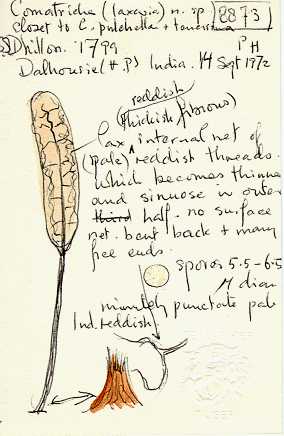 Comatricha (laxa sia) n. sp. 2873
closet to C. pulchella + tenerrima
Dhillon. 1799 P H
Dalhousie (H.P) India. 14 Sept 1972
reddish
(thickish fibrous)
lax internal net of
(pale) reddish threads.
which becomes thinner
and sinuose in outer
half. no surface
net. bent back + many
free ends.
spores 5.5-6.5
M diam
minutely punctate pale
reddish